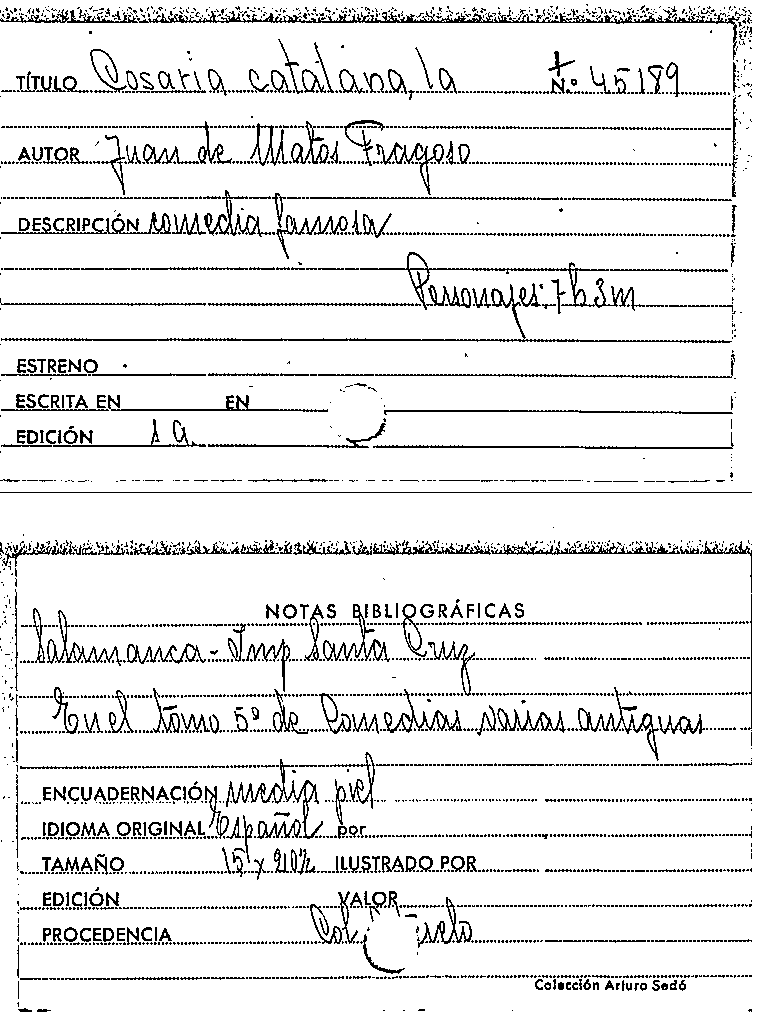 TÍTULO Cosaria catalana, la + N.º 45189
AUTOR Juan de Matos Fragoso
DESCRIPCIÓN comedia famosa
Personajes: 7 h 3 m
ESTRENO
ESCRITA EN EN
EDICIÓN s a.
NOTAS BIBLIOGRÁFICAS
Salamanca - Imp Santa Cruz
En el tomo 5º de Comedias varias antiguas
ENCUADERNACIÓN media piel
IDIOMA ORIGINAL Español por
TAMAÑO 15 x 20½ ILUSTRADO POR
EDICIÓN VALOR
PROCEDENCIA Col
Colección Arturo Sedó